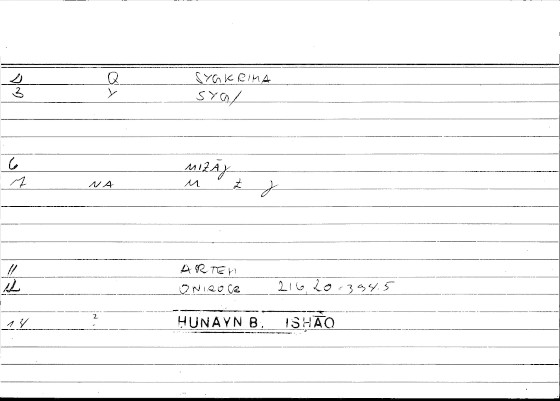 Q SYGKRIMA
3 Y SYG/
6 MIZĀJ
7 NA M Z J
11 ARTEM
12 ONIROCR 216,20-394.5
14 ? HUNAYN B. ISḤĀQ